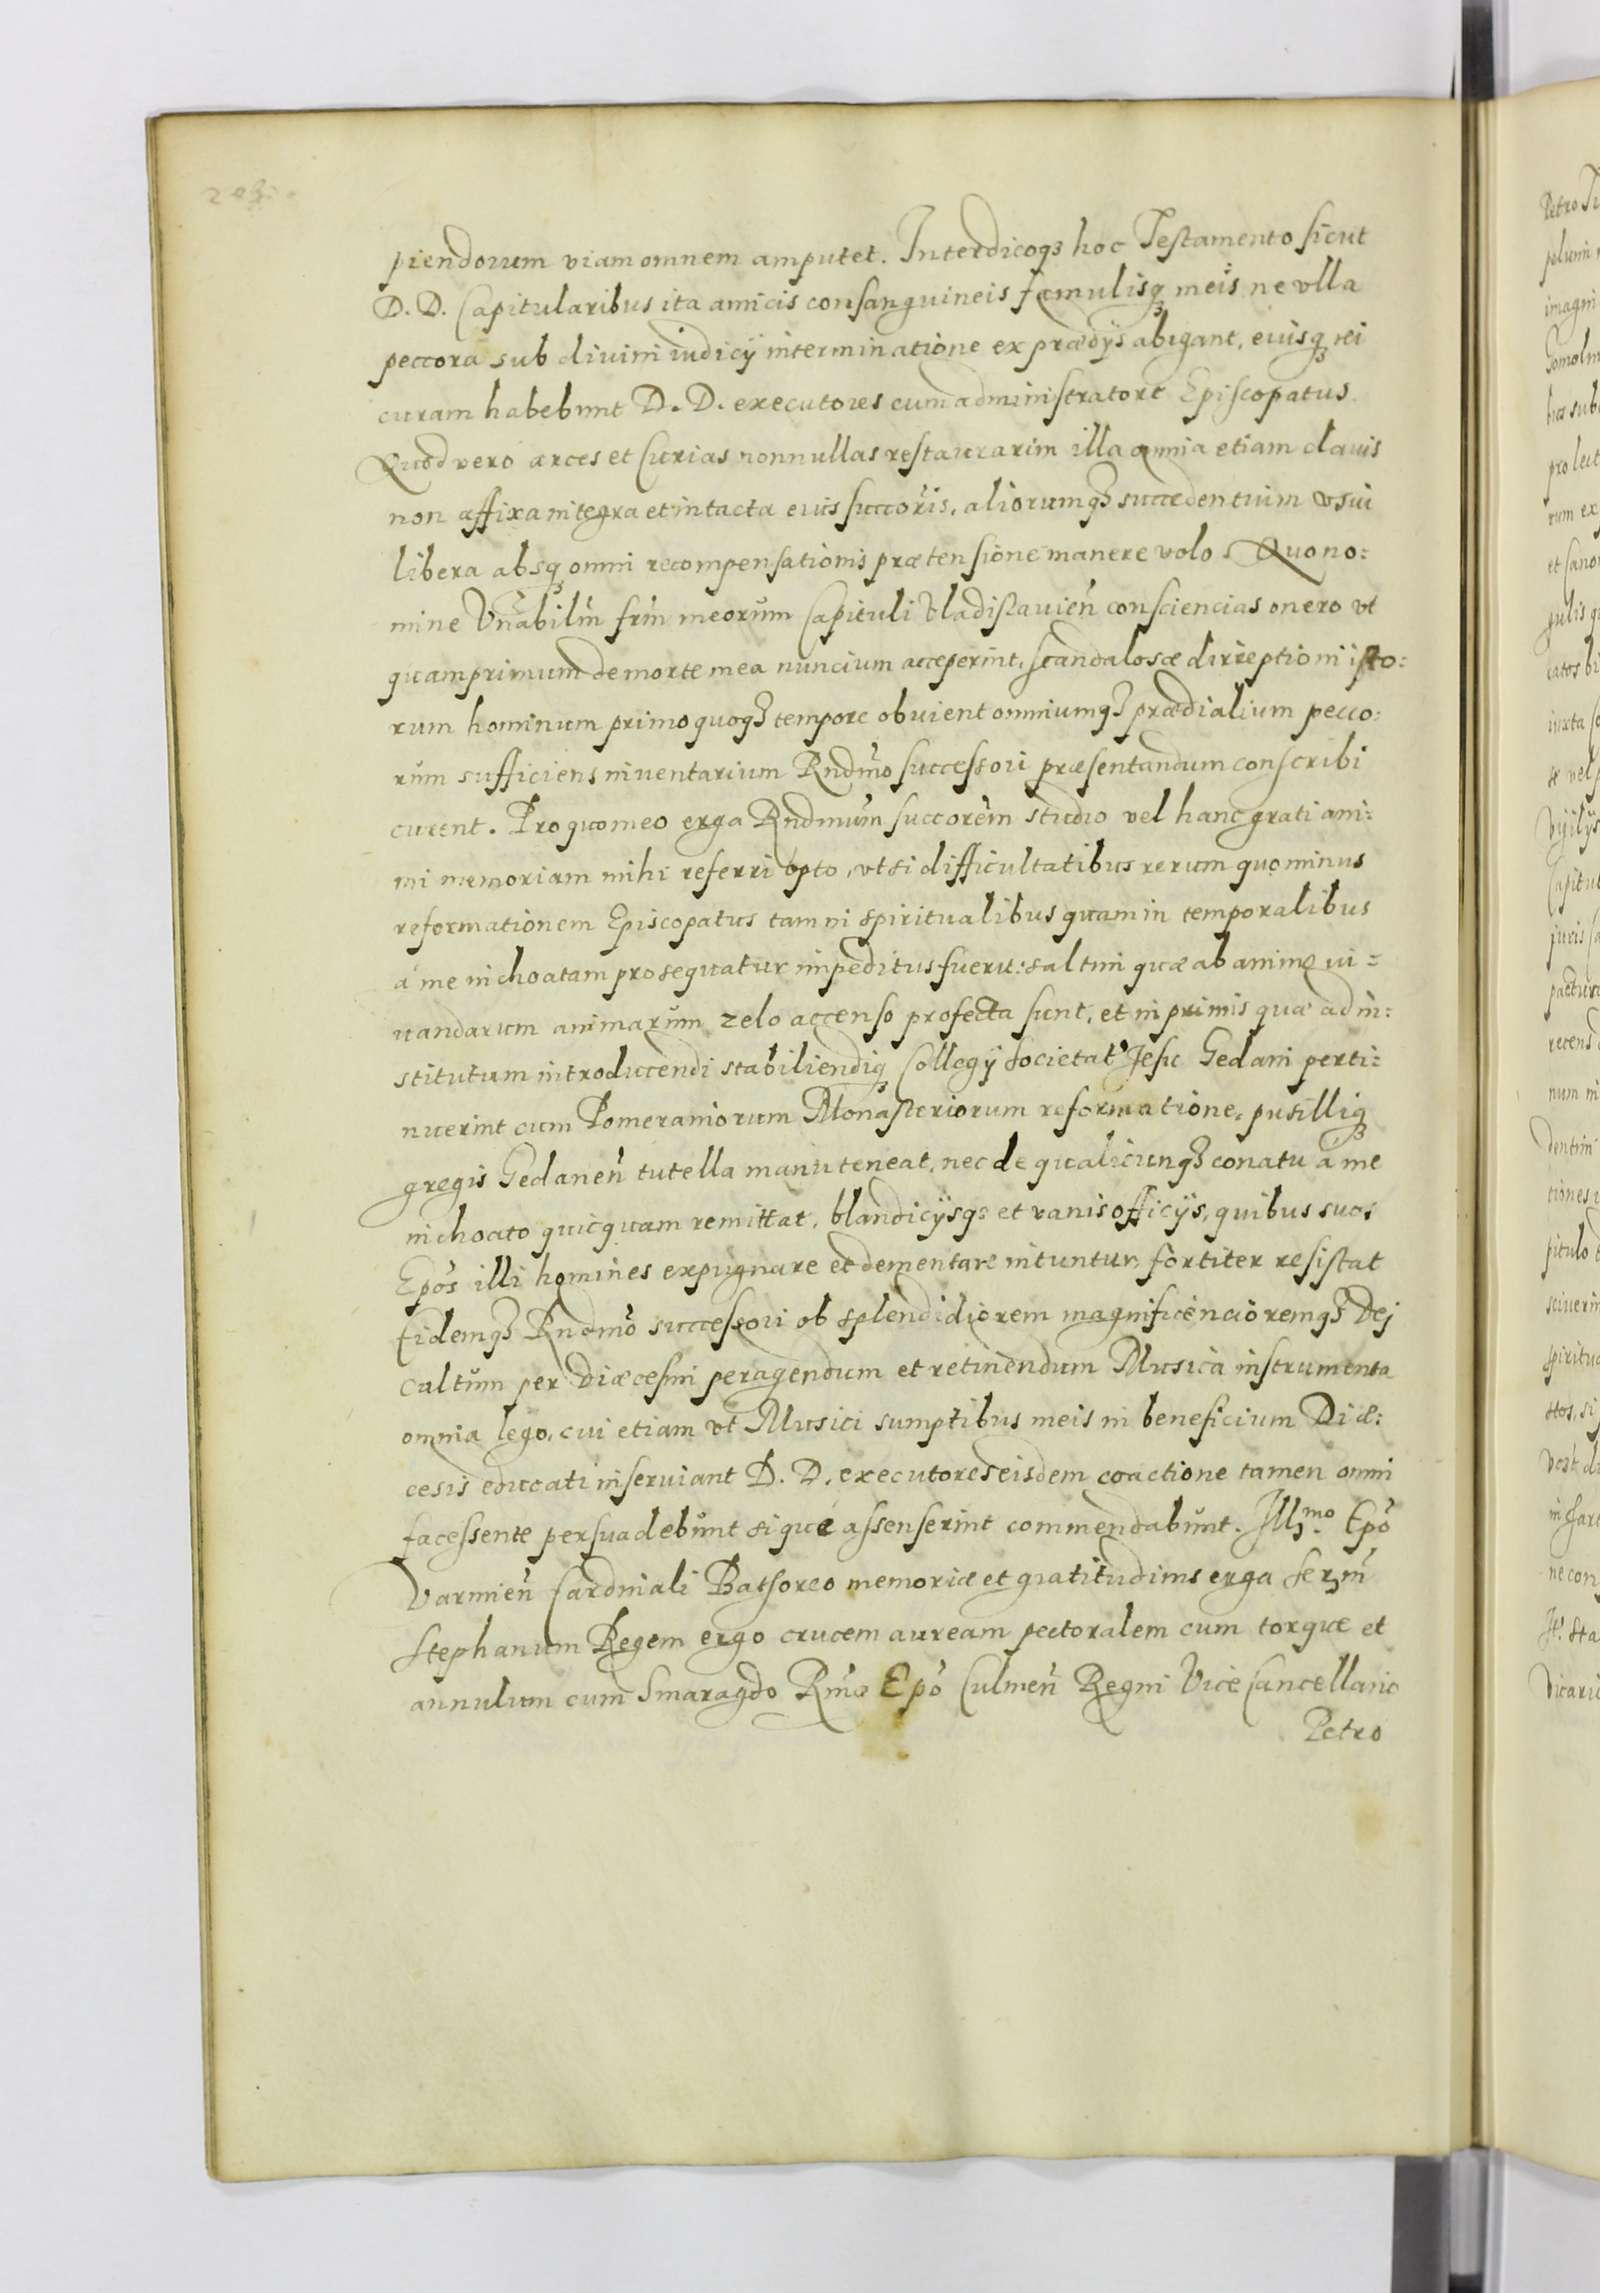 piendorum viam omnem amputet. Interdicoqȝ hoc Testamento sicut
D. D. Capitularibus ita amicis consanguineis famulisqȝ meis ne vlla
peccora sub divini iudicÿ interminatione ex prædÿs abigant, eiusqȝ rei
curam habebunt D. D. executores cum administratore Episcopatus.
Quod vero arces et Curias nonnullas restaurarim illa omnia etiam clauis
non affixa integra et intacta eius succoris, aliorumqȝ succedentium vsui
libera absqȝ omni recompensationis prætensione manere volo. Quo no:
mine Vnabiliũ frũ meorum Capituli Vladislauieñ consciencias onero vt
quamprimum de morte mea nuncium acceperint, scandalosæ dirreptioni isto:
rum hominum primo quoqȝ tempore obuient omniumqȝ prædialium pecco:
rum sufficiens inuentarium Rndmõ successori præsentandum conscribi
curent. Pro quo meo erga Rndmum succorem studio vel hanc grati ani:
mi memoriam mihi referri opto, vt si difficultatibus rerum quominus
reformationem Episcopatus tam in spiritualibus quam in temporalibus
à me inchoatam prosequatur impeditus fuerit: saltim quæ ab animo iu=
uandarum animarum zelo accenso profecta sunt, et in primis quæ ad in:
stitutum introducendi stabiliendiqȝ Collegÿ Societat' Jesu Gedani perti:
nuerint cum Pomeraniorum Monasteriorum reformatione, pusilliqȝ
gregis Gedaneñ tutella manuteneat, nec de qualicunqȝ conatu à me
inchoato quicquam remittat, blandicÿsqȝ et vanis officÿs, quibus suos
Epõs illi homines expugnare et dementare nituntur, fortiter resistat
Eidemqȝ Rndmõ successori ob splendidiorem magnificencioremqȝ Dej
cultum per Diæcesim peragendum et retinendum Musica instrumenta
omnia lego, cui etiam vt Musici sumptibus meis in beneficium Diæ:
cesis educati inserviant D. D. executores eisdem coactione tamen omni
facessente persuadebunt si qui assenserint commendabunt. Illmo. Epõ
Varmieñ Cardinali Batsoreo memoriæ et gratitudinis erga Serm̃
Stephanum Regem ergo crucem auream pectoralem cum torque et
annulum cum Smaragdo Rmõ Epõ Culmeñ Regni Vice Cancellario
Petro